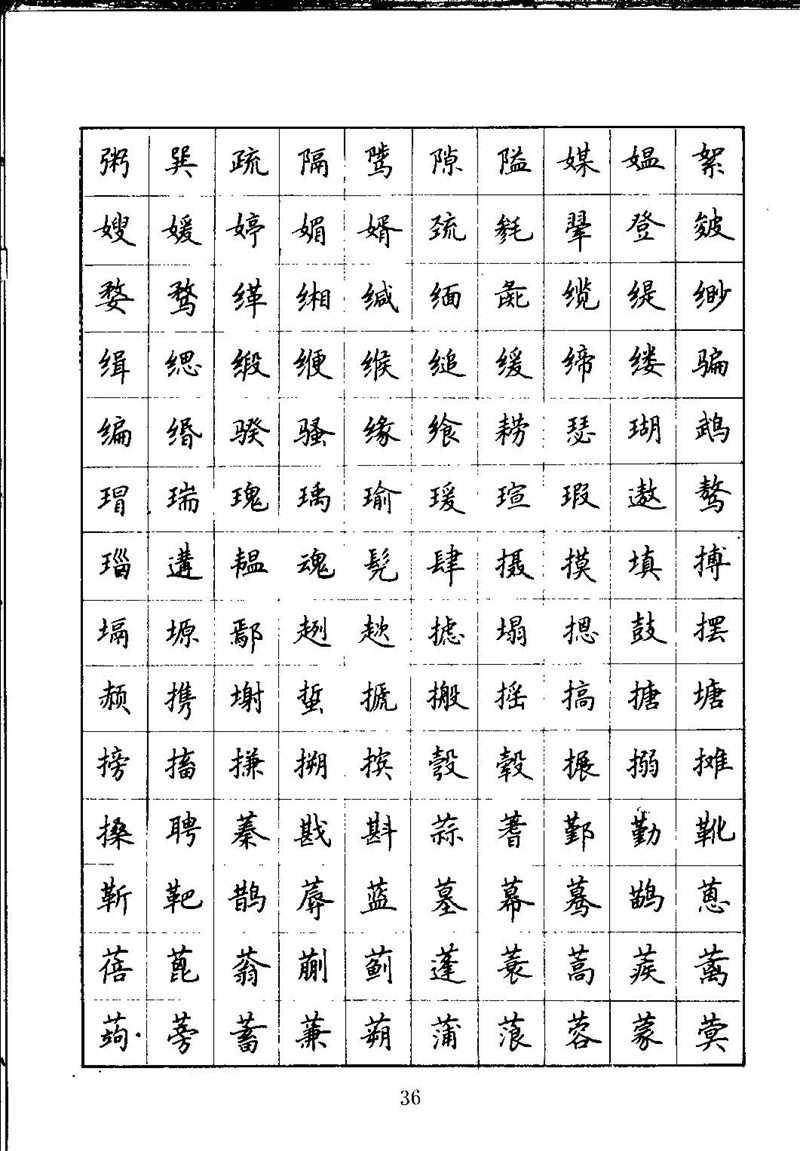 粥 巽 疏 隔 骘 隙 隘 媒 媪 絮
嫂 媛 婷 媚 婿 巯 毵 翚 登 皴
婺 骛 缂 缃 缄 缅 彘 缆 缇 缈
缉 缌 缎 缏 缑 缒 缓 缔 缕 骗
编 缗 骙 骚 缘 飨 耢 瑟 瑚 鹉
瑁 瑞 瑰 瑀 瑜 瑗 瑄 瑕 遨 骜
瑙 遘 韫 魂 髡 肆 摄 摸 填 搏
塥 塬 鄢 趔 趑 摅 塌 摁 鼓 摆
赪 携 塮 蜇 搋 搬 摇 搞 搪 塘
搒 搐 搛 搠 摈 彀 毂 搌 搦 摊
搡 聘 蓁 戡 斟 蒜 蓍 鄞 勤 靴
靳 靶 鹊 蓐 蓝 墓 幕 蓦 鹋 蒽
蓓 蓖 蓊 蒯 蓟 蓬 蓑 蒿 蒺 蓠
蒟 蒡 蓄 蒹 蒴 蒲 蒗 蓉 蒙 蓂
36